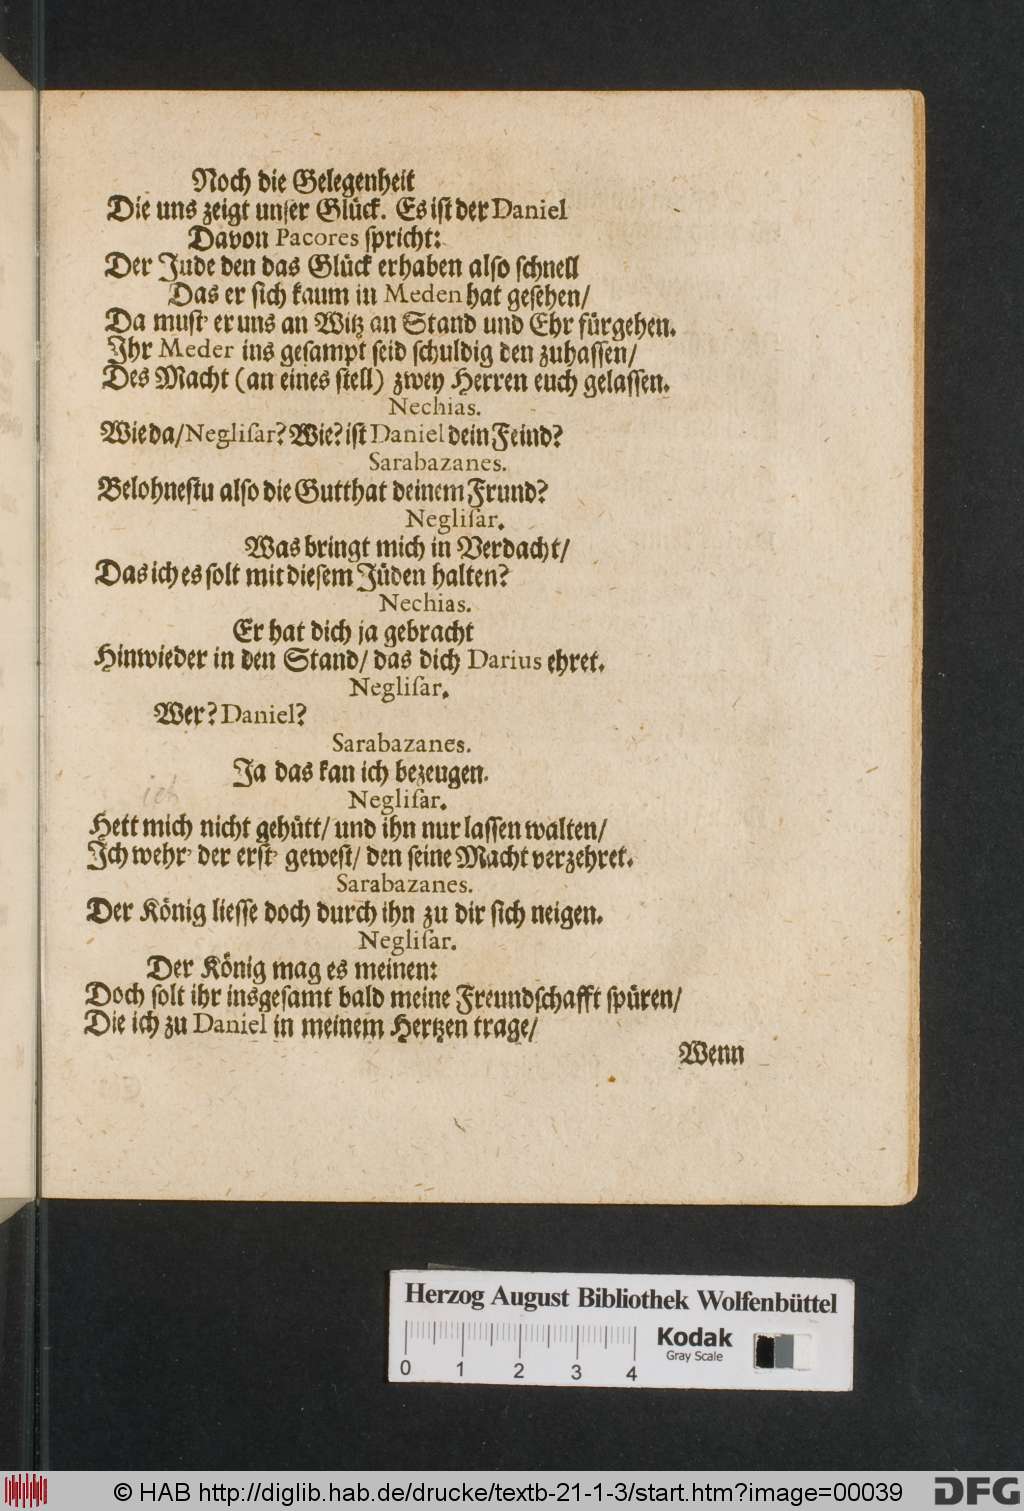 Noch die Gelegenheit
Die uns zeigt unser Glück. Es ist der Daniel
Davon Pacores spricht:
Der Jude den das Glück erhaben also schnell
Das er sich kaum in Meden hat gesehen/
Da must' er uns an Witz an Stand und Ehr fürgehen.
Ihr Meder ins gesampt seid schuldig den zuhassen/
Des Macht (an eines stell) zwey Herren euch gelassen.
Nechias.
Wie da/ Neglisar? Wie? ist Daniel dein Feind?
Sarabazanes.
Belohnestu also die Gutthat deinem Frund?
Neglisar.
Was bringt mich in Verdacht/
Das ich es solt mit diesem Jüden halten?
Nechias.
Er hat dich ja gebracht
Hinwieder in den Stand/ das dich Darius ehret.
Neglisar.
Wer? Daniel?
Sarabazanes.
Ja das kan ich bezeugen.
ich
Neglisar.
Hett mich nicht gehütt/ und ihn nur lassen walten/
Ich wehr' der erst' gewest/ den seine Macht verzehret.
Sarabazanes.
Der König liesse doch durch ihn zu dir sich neigen.
Neglisar.
Der König mag es meinen:
Doch solt ihr insgesamt bald meine Freundschafft spüren/
Die ich zu Daniel in meinem Hertzen trage/
Wenn
Herzog August Bibliothek Wolfenbüttel
Kodak
Gray Scale
0 1 2 3 4
© HAB http://diglib.hab.de/drucke/textb-21-1-3/start.htm?image=00039
DFG